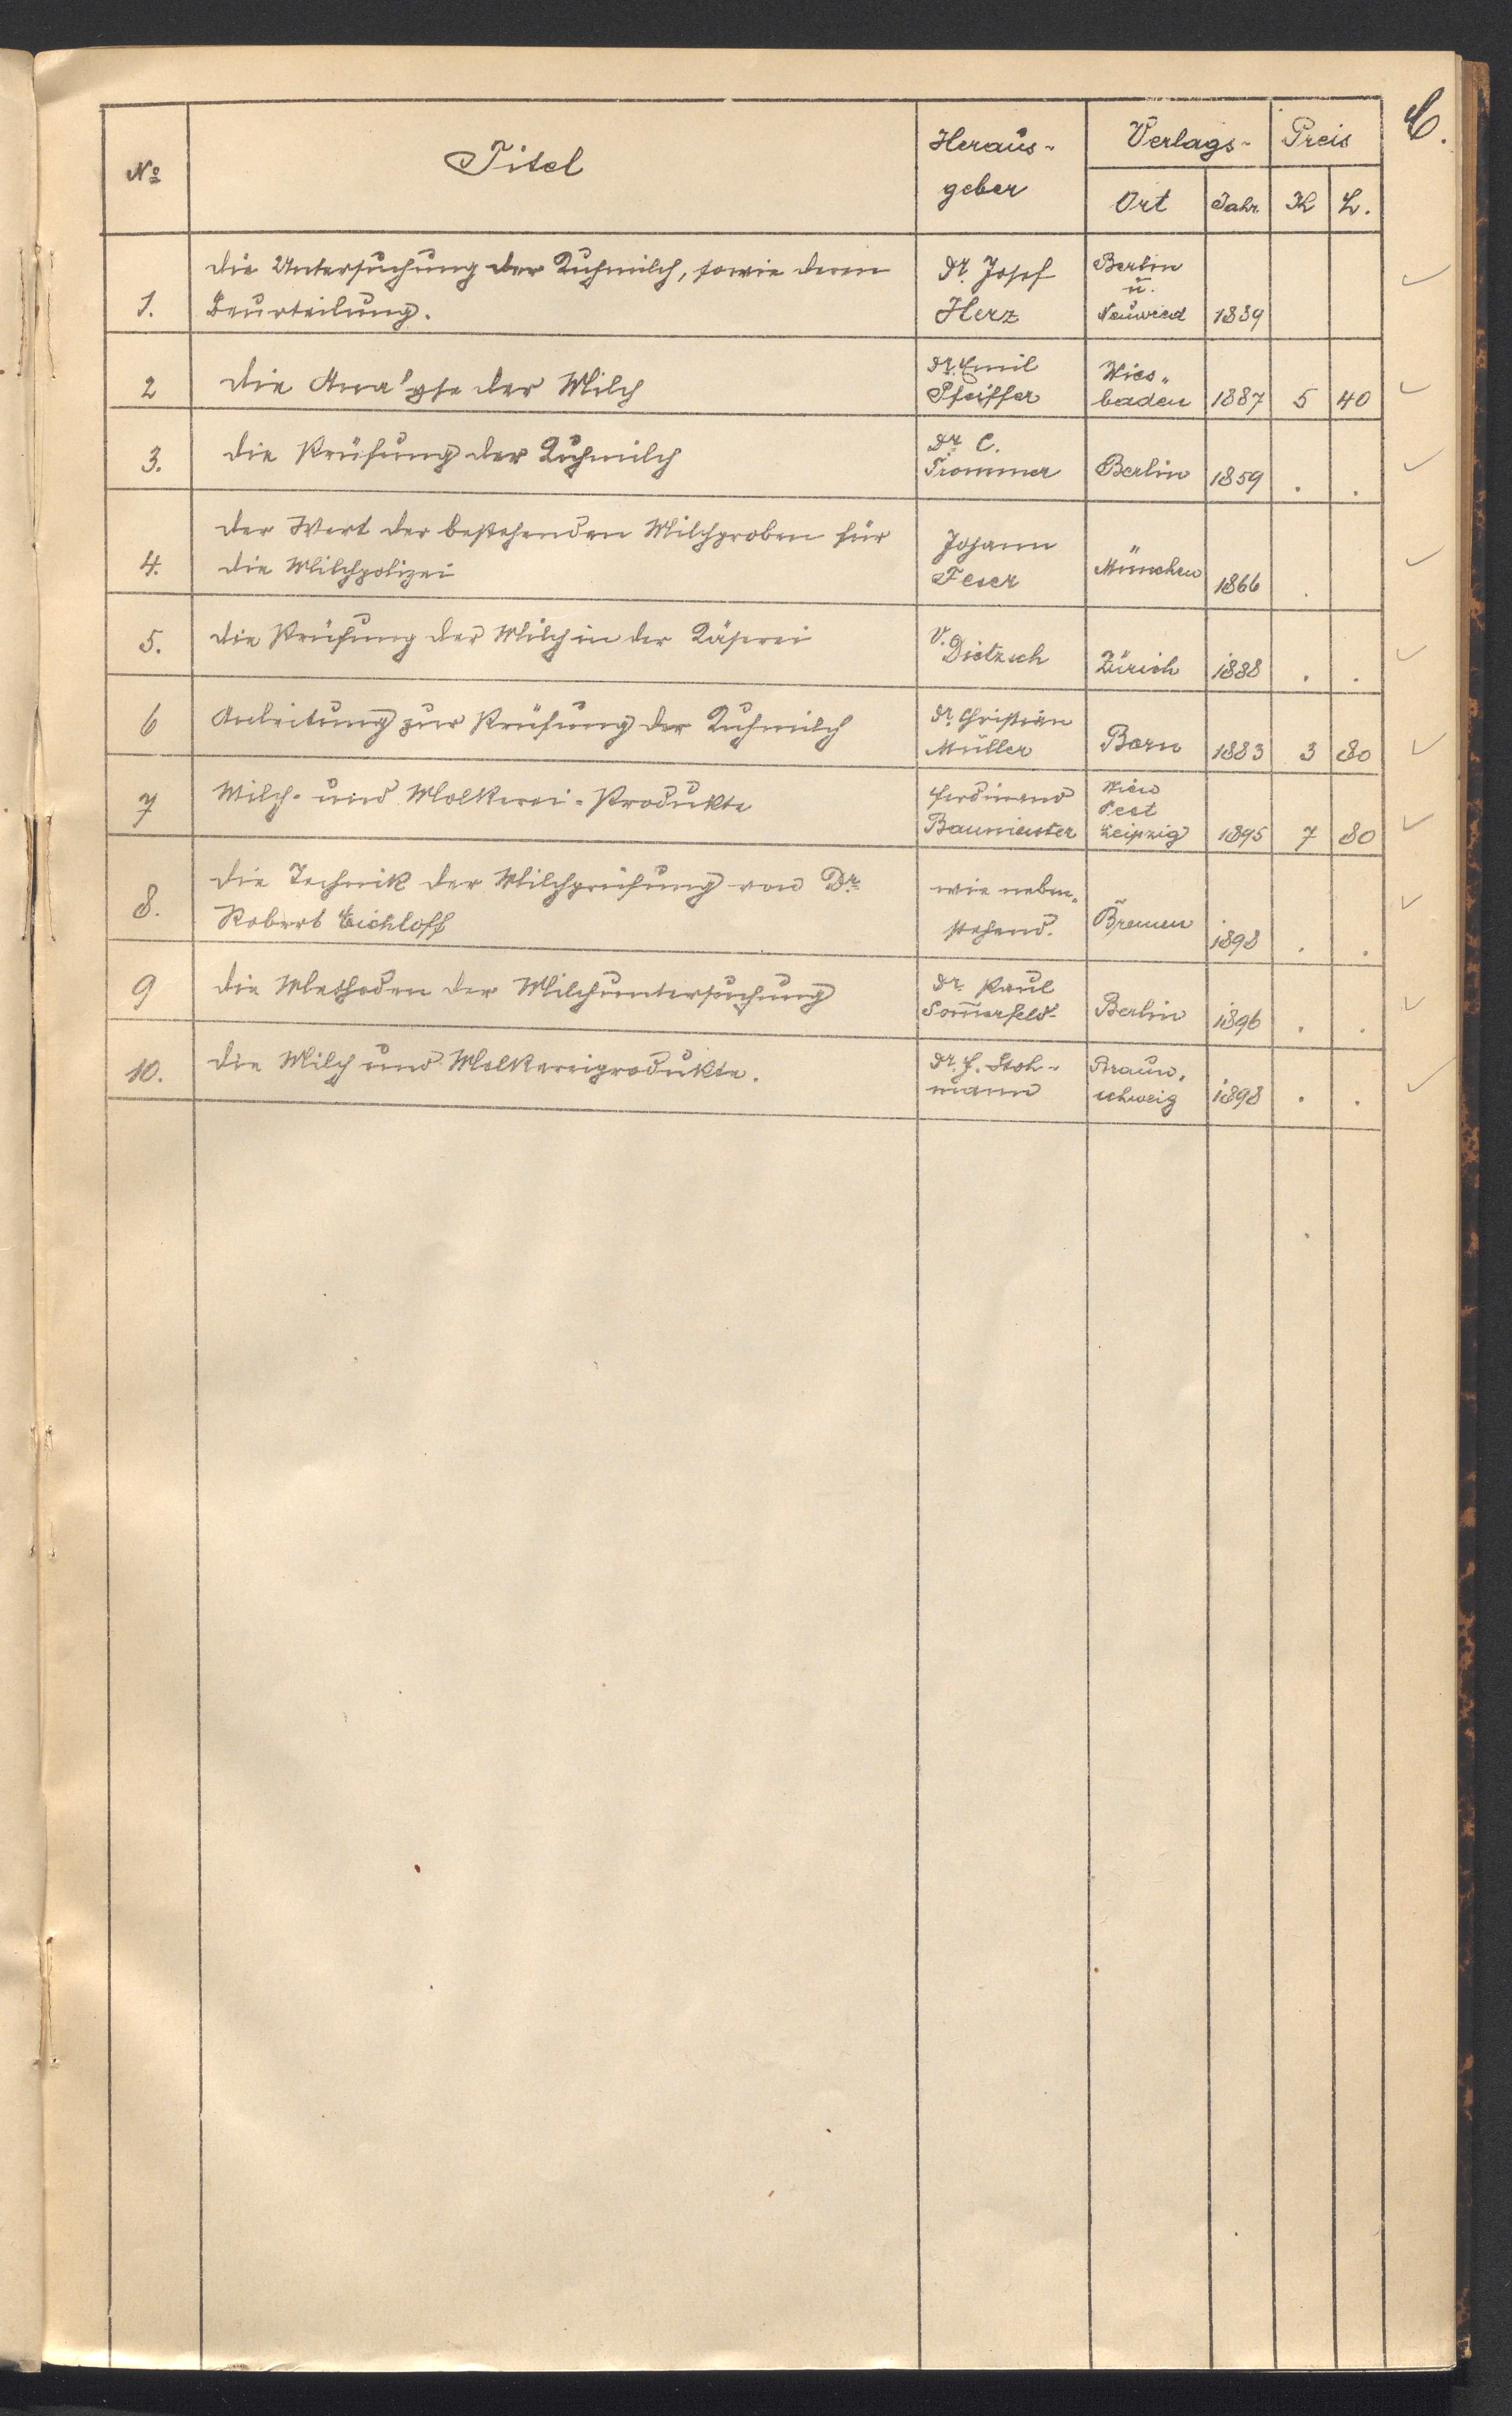 C.
№ Titel Heraus- Verlags- Preis
geber Ort Jahr K h.
Die Untersuchung der Kuhmilch, sowie deren Dr. Josef Berlin
ü.
1. Beurteilung. Herz Neuwied 1889 ✓
Dr. Emil Wies„
2 Die Analyse der Milch Pfeiffer baden 1887 5 40 ✓
Dr. C.
3. Die Prüfung der Kuhmilch Trommer Berlin 1859 . . ✓
Der Wert der bestehenden Milchproben für Johann
4. die Milchpolizei Feser München 1866 . ✓
V.
5. Die Prüfung der Milch in der Käserei Dietzsch Zürich 1888 . . ✓
Dr. Christian
6 Anleitung zur Prüfung der Kuhmilch Müller Bern 1883 3 80 ✓
Ferdinand Wien
Pest
7 Milch- und Molkerei-Produkte Baumeister Leipzig 1895 7 80 ✓
Die Technik der Milchprüfung von Dr. wie neben„
8. Robert Eichloff stehend. Bremen 1898 . . ✓
Dr. Paul
9 Die Methoden der Milchuntersuchung Som̄erfeld Berlin 1896 . . ✓
Dr. F. Stoh- Braun„
10. Die Milch und Molkereiprodukte. mann schweig 1898 . . ✓